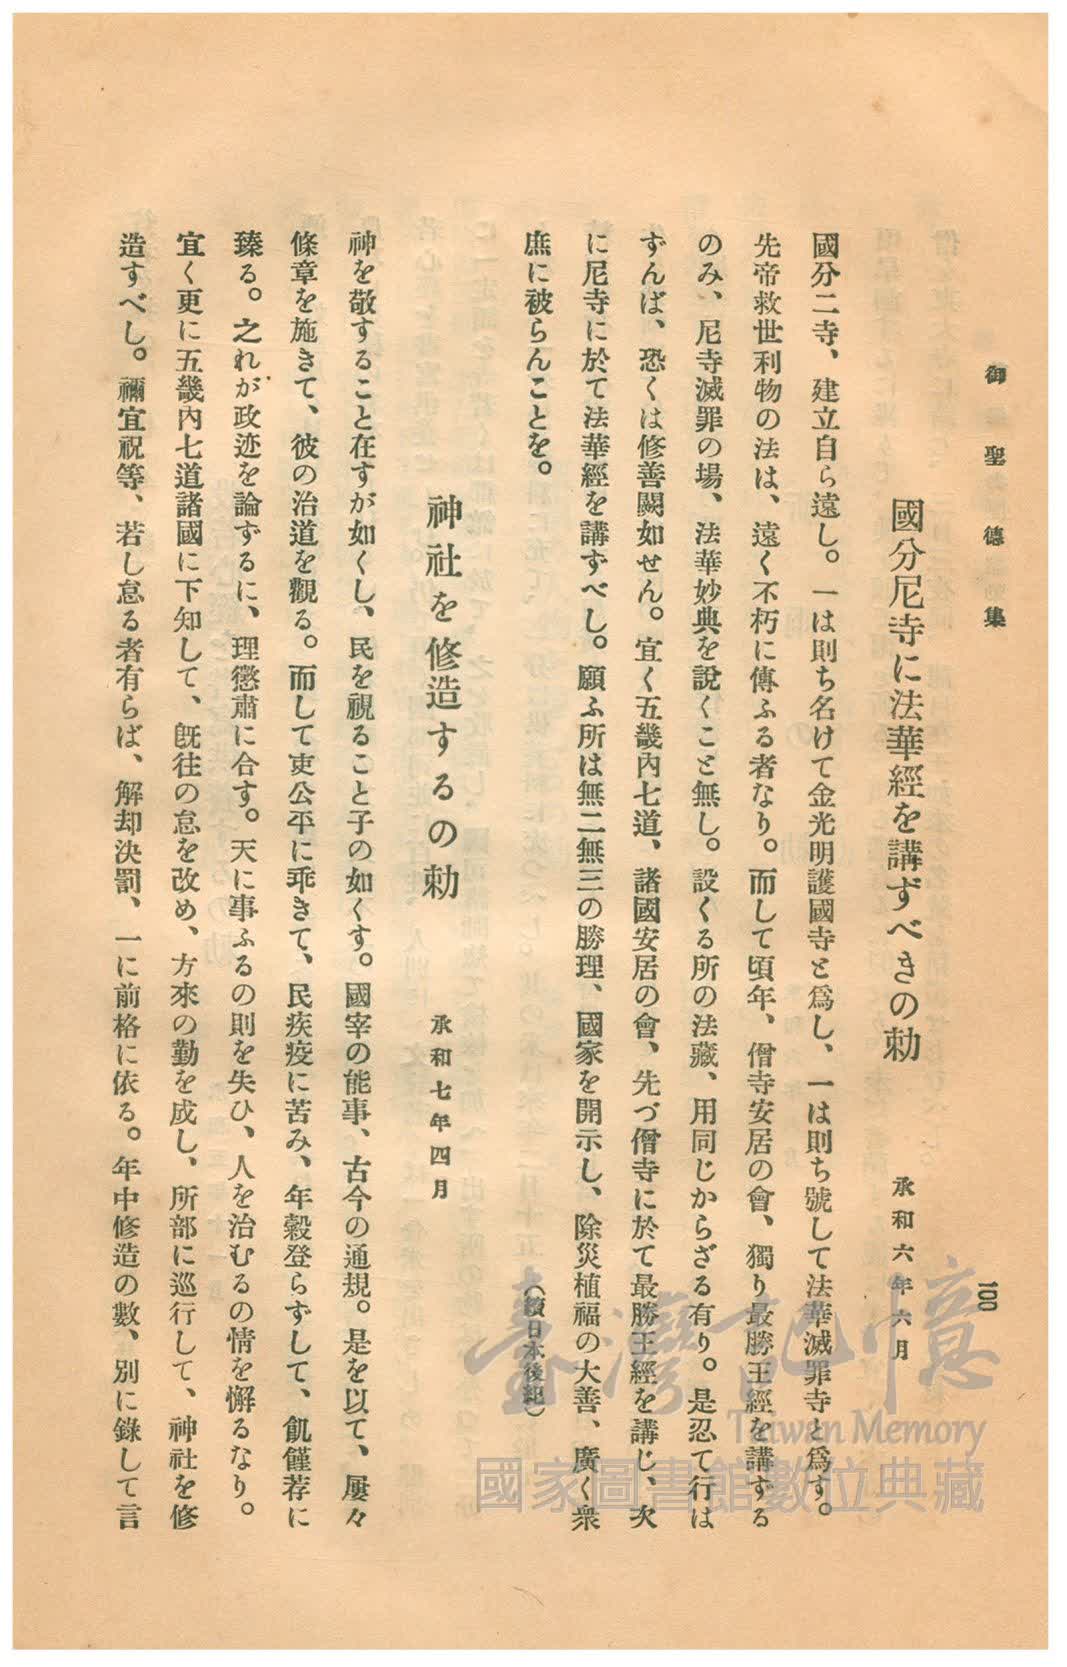 御聖德集
一〇〇
國分尼寺に法華經を講ずべきの勅
承和六年六月
國分二寺、建立自ら遠し。一は則ち名けて金光明護國寺と爲し、一は則ち號して法華滅罪寺と爲す。
先帝救世利物の法は、遠く不朽に傳ふる者なり。而して頃年、僧寺安居の會、獨り最勝王經を講ずる
のみ、尼寺滅罪の場、法華妙典を說くこと無し。設くる所の法藏、用同じからざる有り。是忍て行は
ずんば、恐くは修善闕如せん。宜く五畿內七道、諸國安居の會、先づ僧寺に於て最勝王經を講じ、次
に尼寺に於て法華經を講ずべし。願ふ所は無二無三の勝理、國家を開示し、除災植福の大善、廣く衆
庶に被らんことを。
(續日本後紀)
神社を修造するの勅
承和七年四月
神を敬すること在すが如くし、民を視ること子の如くす。國宰の能事、古今の通規。是を以て、屢々
條章を施きて、彼の治道を觀る。而して吏公平に乖きて、民疾疫に苦み、年穀登らずして、飢饉荐に
臻る。之れが政迹を論ずるに、理懲肅に合す。天に事ふるの則を失ひ、人を治むるの情を懈るなり。
宜く更に五畿內七道諸國に下知して、旣往の怠を改め、方來の勤を成し、所部に巡行して、神社を修
造すべし。禰宜祝等、若し怠る者有らば、解却決罰、一に前格に依る。年中修造の數、別に錄して言
臺灣記憶
Taiwan Memory
國家圖書館數位典藏